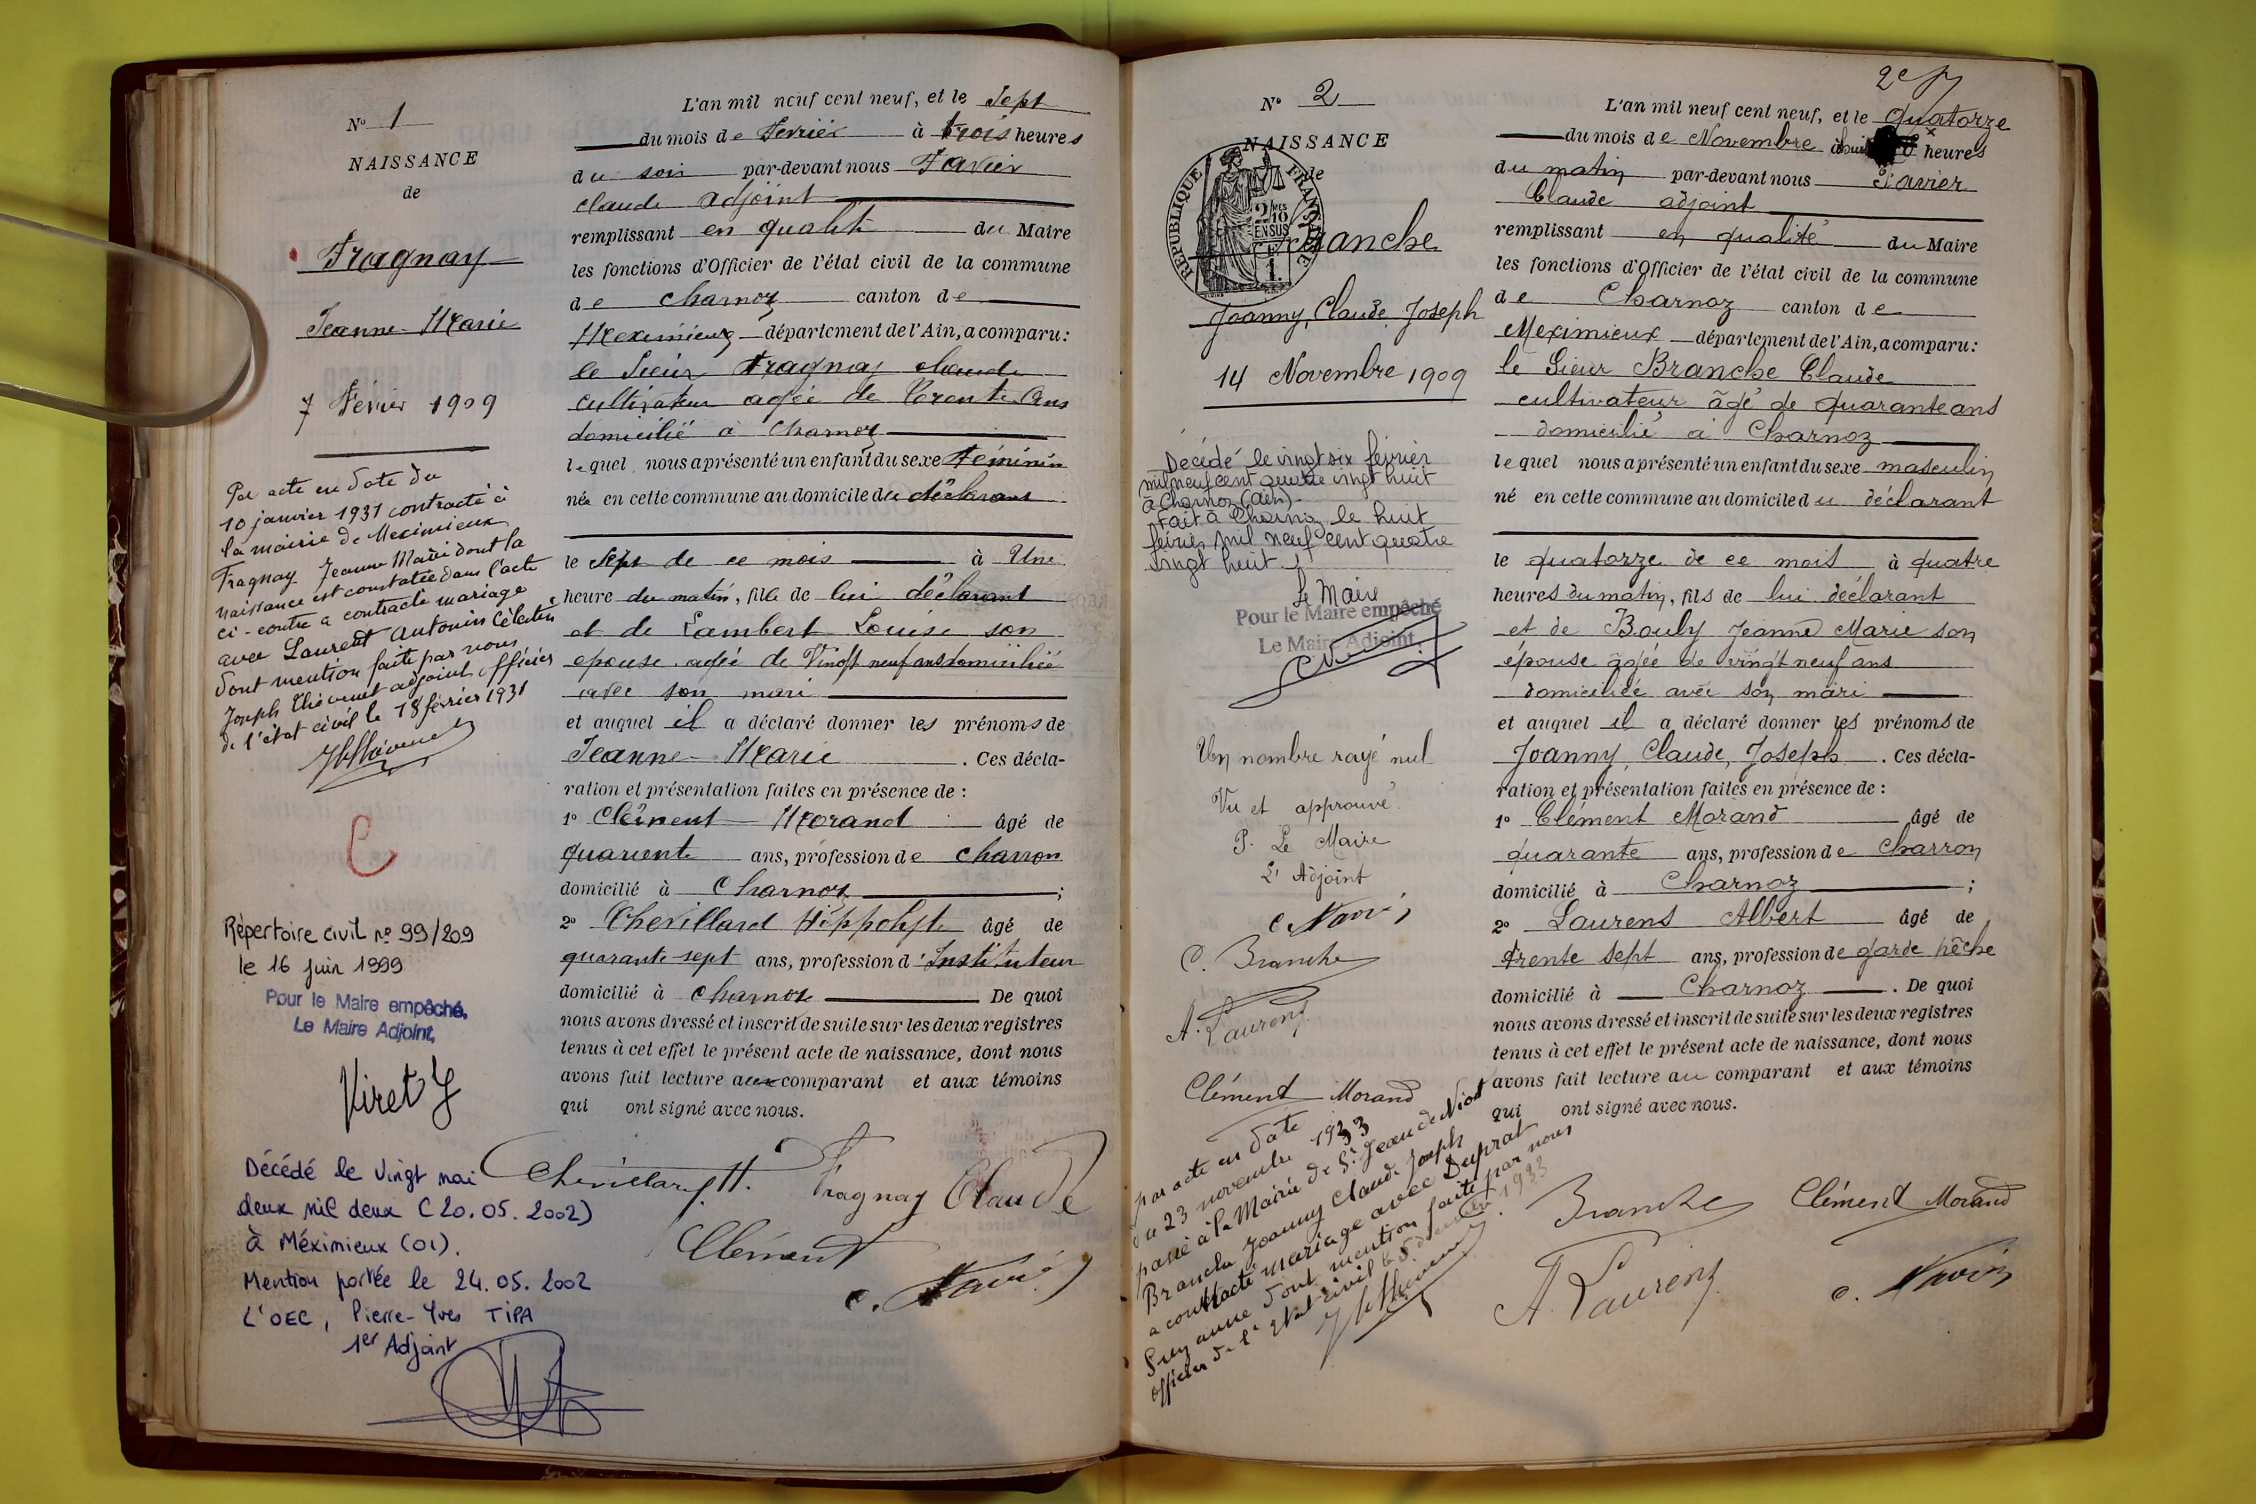 N° 1
NAISSANCE
de
Fragnay
Jeanne-Marie
7 Février 1909
Par acte en date du
10 janvier 1931 contracté à
la mairie de Meximieux
Fragnay Jeanne Marie dont la
naissance est constatée dans l'acte
ci-contre a contracté mariage
avec Laurent Antonin Célestin
dont mention faite par nous
Joseph Thévenet adjoint officier
de l'état civil le 18 février 1931
C
Répertoire civil n° 99/209
le 16 juin 1999
Pour le Maire empêché,
Le Maire Adjoint,
Viret J
Décédé le vingt mai
deux mil deux (20.05.2002)
à Méximieux (01).
Mention portée le 24.05.2002
L'OEC, Pierre-Yves TIPA
1er Adjoint
L'an mil neuf cent neuf, et le Sept
du mois de Fevrier à trois heures
du soir par-devant nous Favier
Claude adjoint
remplissant en qualité du Maire
les fonctions d'Officier de l'état civil de la commune
de Charnoz canton de
Meximieux département de l'Ain, a comparu:
le Sieur Fragnay Claude
cultivateur agée de Trente Ans
domicilié à Charnoz
lequel nous a présenté un enfant du sexe Féminin
née en cette commune au domicile du déclarant
le Sept de ce mois à Une
heure du matin, fille de lui déclarant
et de Lambert Louise son
epouse agée de Vingt neuf ans domiciliée
avec son mari
et auquel il a déclaré donner les prénoms de
Jeanne-Marie. Ces décla-
ration et présentation faites en présence de :
1° Clément Morand âgé de
quarente ans, profession de charron
domicilié à Charnoz ;
2° Chevillard Hippolyte âgé de
quarante sept ans, profession d'Instituteur
domicilié à Charnoz De quoi
nous avons dressé et inscrit de suite sur les deux registres
tenus à cet effet le présent acte de naissance, dont nous
avons fait lecture aux comparant et aux témoins
qui ont signé avec nous.
Chevillard H. Fragnay Claude
Clément
c. Favier
2e
N° 2
NAISSANCE
de
RÉPUBLIQUE FRANÇAISE
2/10 EN SUS
1.
Branche
Joanny, Claude, Joseph
14 Novembre 1909
Décédé le vingt six février
mil neuf cent quatre vingt huit
à Charnoz (Ain).
Fait à Charnoz le huit
février mil neuf cent quatre
vingt huit.
Le Maire
Pour le Maire empêché
Le Maire Adjoint
Un nombre rayé nul
Vu et approuvé
P. Le Maire
L' Adjoint
c. Favier
C. Branche
A. Laurens
Clément Morand
par acte en date
du 23 novembre 1933
passé à la Mairie de St Jean de Niost
Branche Joanny Claude Joseph
a contracté mariage avec Duprat
Suzanne dont mention faite par nous
officier de l'état civil le 8 décembre 1933
L'an mil neuf cent neuf, et le quatorze
du mois de Novembre à huit heures
du matin par-devant nous Favier
Claude adjoint
remplissant en qualité du Maire
les fonctions d'Officier de l'état civil de la commune
de Charnoz canton de
Meximieux département de l'Ain, a comparu:
le Sieur Branche Claude
cultivateur âgé de quarante ans
domicilié à Charnoz
lequel nous a présenté un enfant du sexe masculin
né en cette commune au domicile du déclarant
le quatorze de ce mois à quatre
heures du matin, fils de lui déclarant
et de Bouly Jeanne Marie son
épouse âgée de vingt neuf ans
domiciliée avec son mari
et auquel il a déclaré donner les prénoms de
Joanny, Claude, Joseph. Ces décla-
ration et présentation faites en présence de :
1° Clément Morand âgé de
quarante ans, profession de Charron
domicilié à Charnoz ;
2° Laurens Albert âgé de
trente sept ans, profession de garde pêche
domicilié à Charnoz. De quoi
nous avons dressé et inscrit de suite sur les deux registres
tenus à cet effet le présent acte de naissance, dont nous
avons fait lecture au comparant et aux témoins
qui ont signé avec nous.
Branche Clément Morand
A. Laurens c. Favier